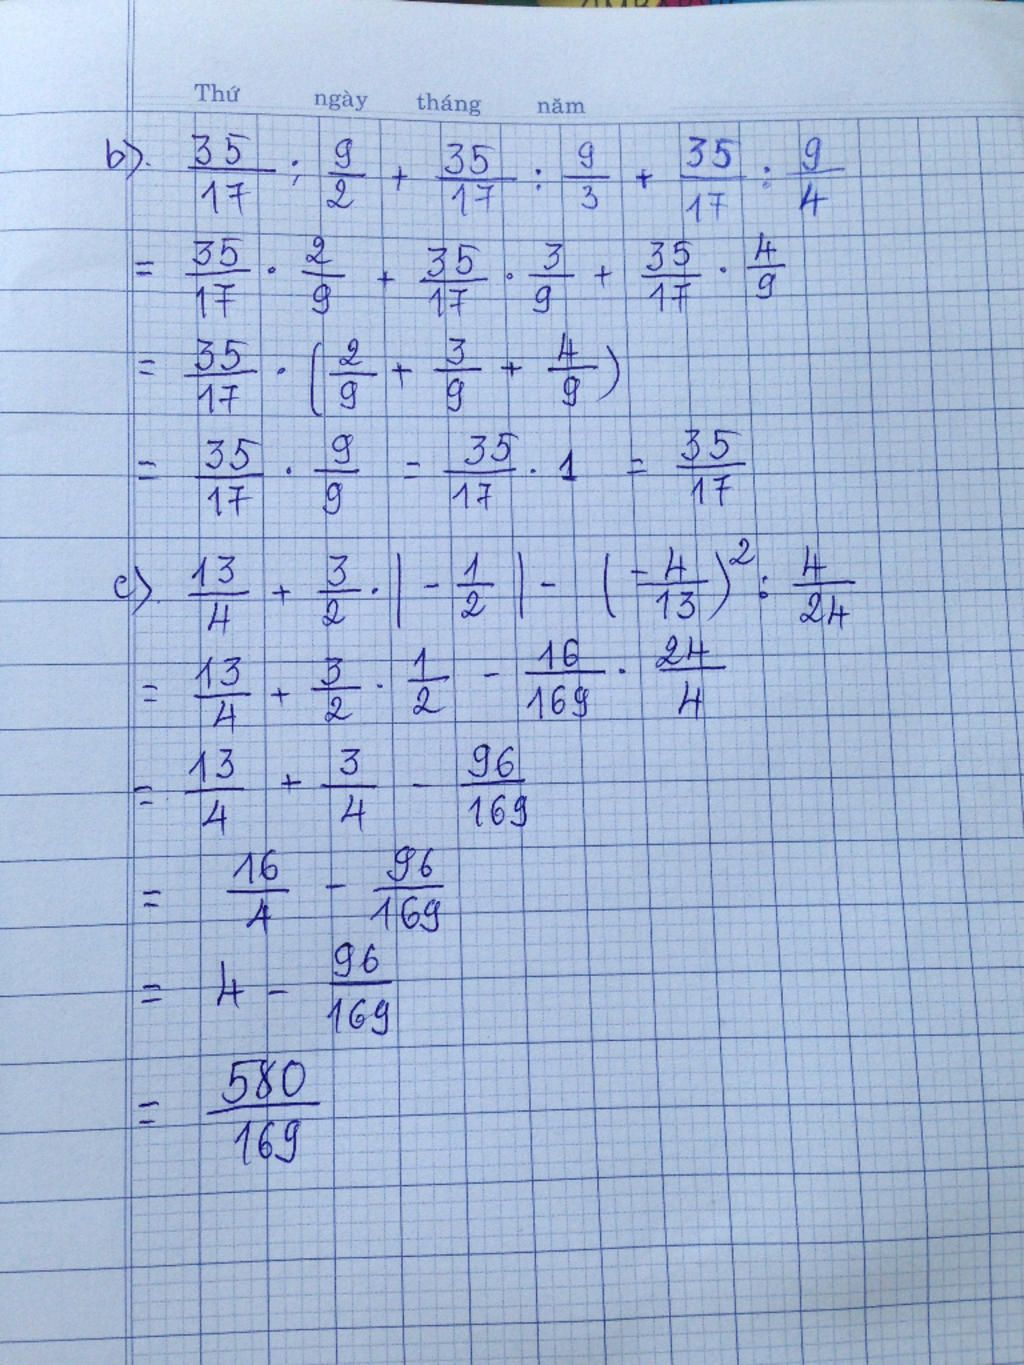 Thứ ngày tháng năm
b). 35/17 : 9/2 + 35/17 : 9/3 + 35/17 : 9/4
= 35/17 . 2/9 + 35/17 . 3/9 + 35/17 . 4/9
= 35/17 . (2/9 + 3/9 + 4/9)
= 35/17 . 9/9 = 35/17 . 1 = 35/17
c). 13/4 + 3/2 . |-1/2| - (-4/13)² : 4/24
= 13/4 + 3/2 . 1/2 - 16/169 . 24/4
= 13/4 + 3/4 - 96/169
= 16/4 - 96/169
= 4 - 96/169
= 580/169